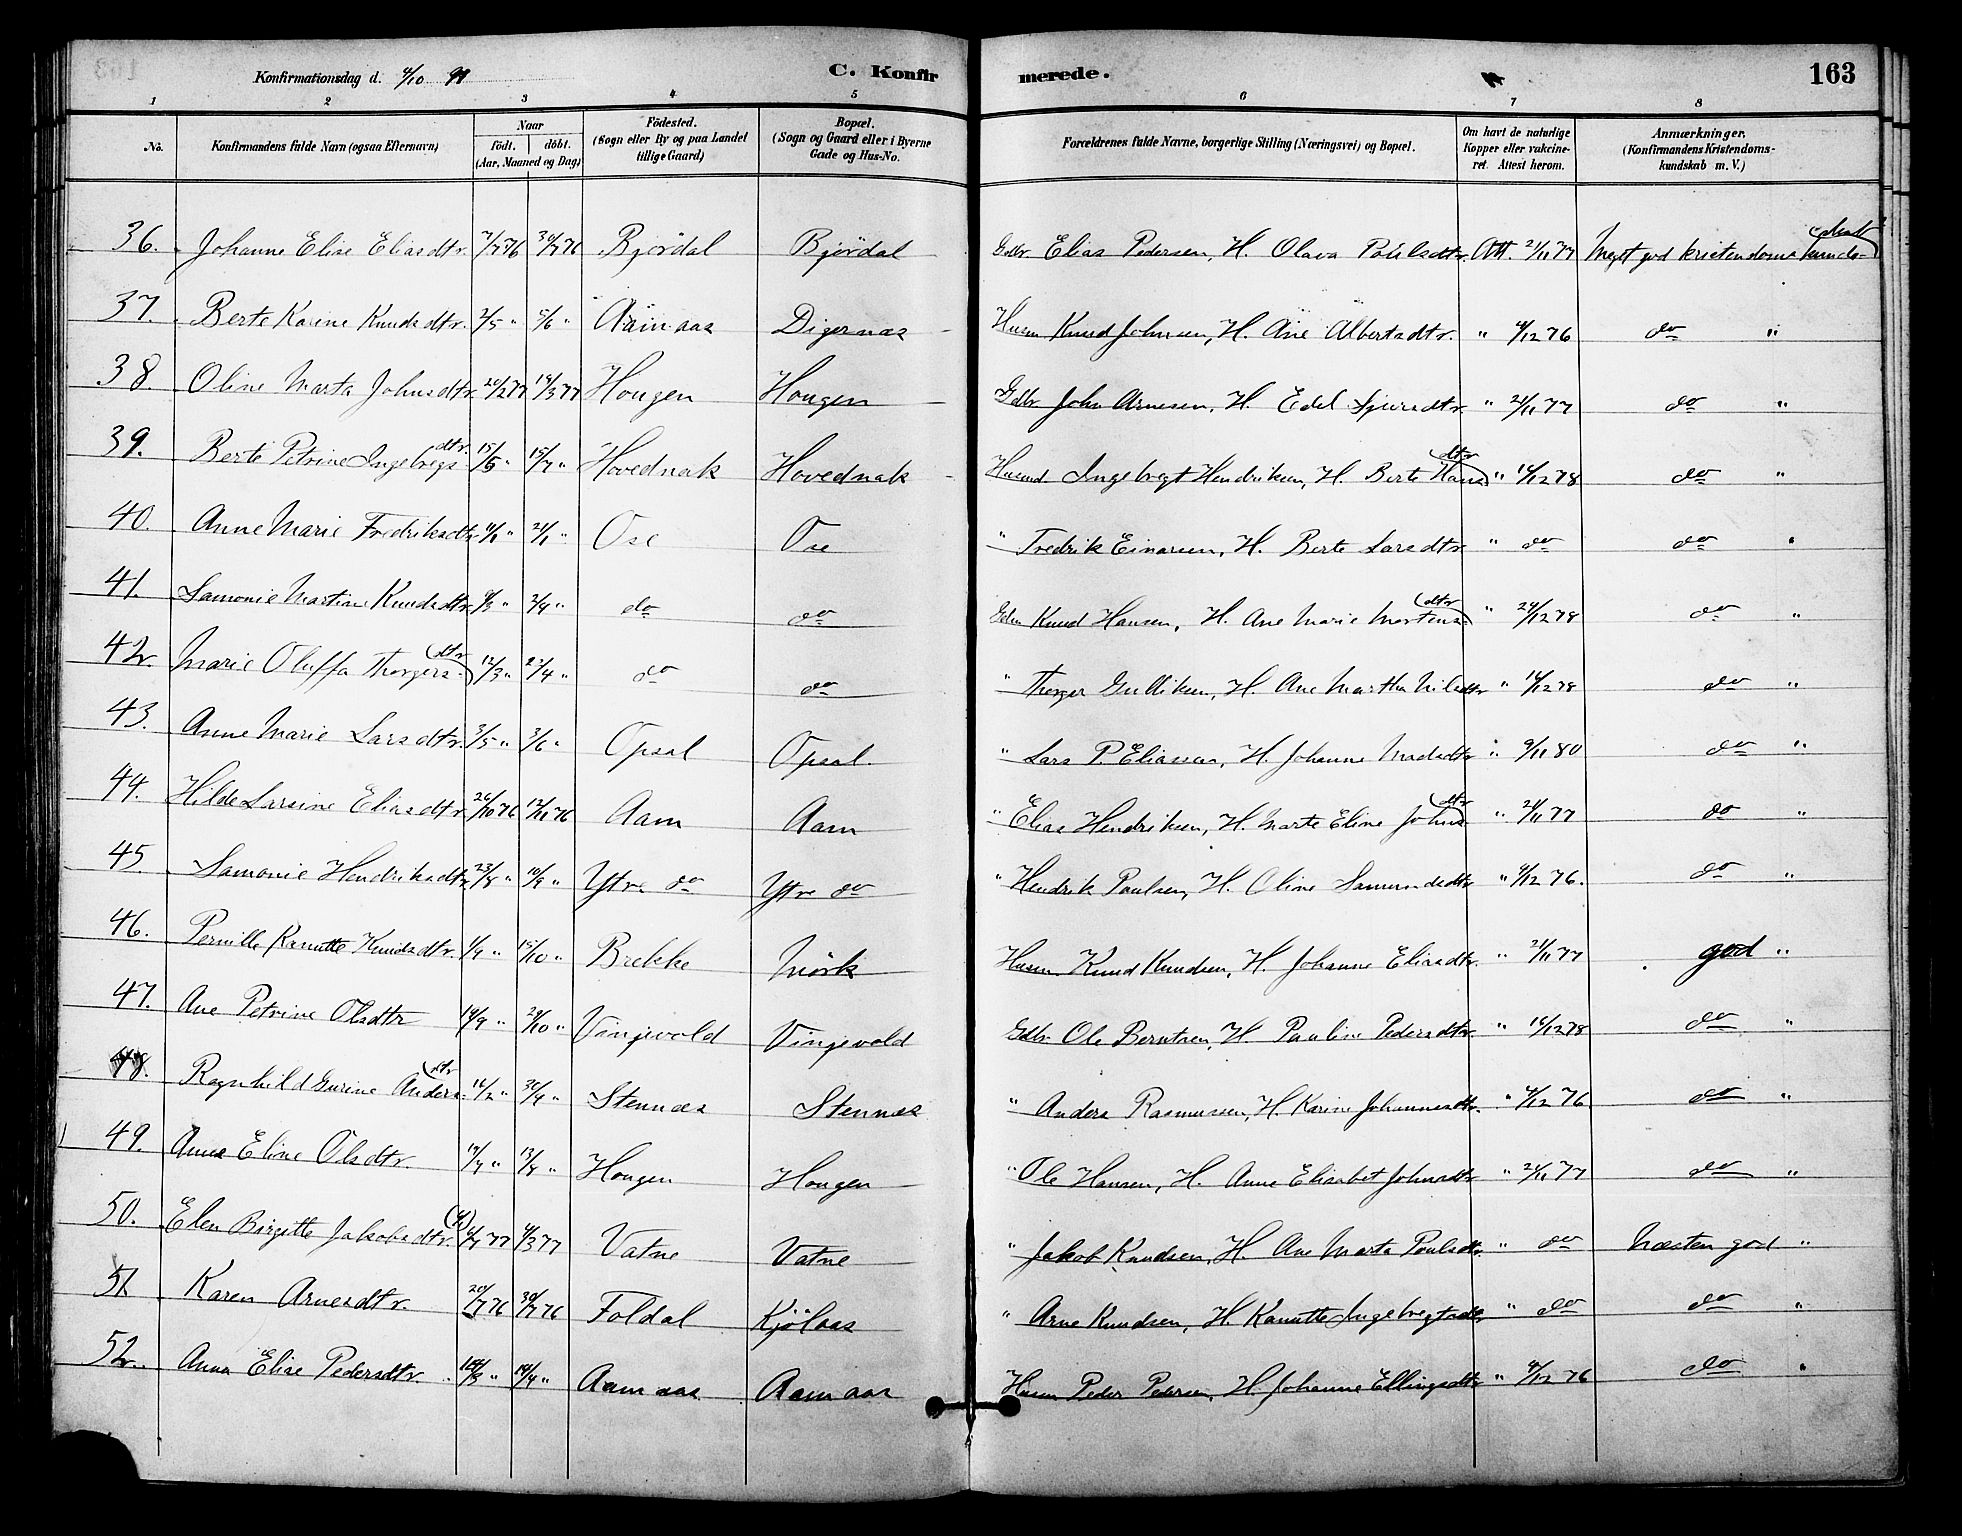 Konfirmationsdag d. 4/10 91
C. Konfirmerede.
163
1 2 3 4 5 6 7 8
No. Konfirmandens fulde Navn (ogsaa Efternavn) Naar födt. döbt. (Aar, Maaned og Dag) Födested. (Sogn eller By og paa Landet tillige Gaard) Bopæl. (Sogn og Gaard eller i Byerne Gade og Hus-No. Forældrenes fulde Navne, borgerlige Stilling (Næringsvei) og Bopæl. Om havt de naturlige Kopper eller vakcineret. Attest herom. Anmærkninger. (Konfirmandens Kristendomskundskab m. V.)
36. Johanne Elise Eliasdtr. 7/7 76 30/7 76 Björdal Björdal Gdbr. Elias Pedersen, H. Olava Paulsdtr. Att. 21/11 77 Meget god kristendomskundskab
37. Berte Karine Knudsdtr. 2/5 " 5/6 " Aamaas Digernæs Husm Knud Johnsen, H. Ane Albertsdtr. " 4/12 76 do "
38. Oline Marta Johnsdtr. 20/2 77 19/3 77 Hougen Hougen Gdbr. John Arnesen, H. Edel Sjursdtr. " 21/11 77 do "
39. Berte Petrine Ingebregsdtr. 15/5 " 15/7 " Hovednak Hovednak Husmd Ingebregt Hendriksen, H. Berte Hansdtr " 14/12 78 do "
40. Anne Marie Fredriksdtr 11/1 " 21/1 " Ose Ose " Fredrik Einarsen, H. Berte Larsdtr " do do "
41. Samonie Martine Knudsdtr. 9/3 " 2/4 " do do Gdbr Knud Hansen, H. Ane Marie Martensdtr " 24/12 78 do "
42. Marie Oluffa Thorgersdtr 12/3 " 2/4 " do do " Thorger Gulliksen, H. Ane Martha Nilsdtr " 14/12 78 do "
43. Anne Marie Larsdtr. 3/5 " 3/6 " Opsal Opsal. " Lars P. Eliassen, H. Johanne Madsdtr " 9/11 80 do "
44. Hilde Larsine Eliasdtr. 26/10 76 12/11 76 Aam Aam " Elias Hendriksen, H. Marte Eline Johnsdtr " 21/11 77 do "
45. Samonie Hendriksdtr 23/8 " 10/9 " Ytre do Ytre do " Hendrik Paulsen, H. Oline Samundsdtr " 4/12 76. do "
46. Pernille Kanutte Knudsdtr. 1/9 " 15/10 " Brekke Mörk Husm Knud Knudsen, H. Johanne Eliasdtr. " 21/11 77 god "
47. Ane Petrine Olsdtr 19/9 " 29/10 " Vinjevold Vinjevold Gdbr. Ole Berntsen, H. Pauline Pedersdtr. " 14/12 78 do "
48. Ragnhild Gurine Andersdtr 16/2 " 30/4 " Stennæs Stennæs " Anders Rasmussen, H. Karine Johannesdtr. " 4/12 76 do "
49. Anne Eline Olsdtr. Hougen Hougen " Ole Hansen, H. Anne Elisabet Johnsdtr " 21/11 77 do "
50. Elen Birgitte Jakobsdtr. 77 4/3 77 Vatne Vatne " Jakob Knudsen, H. Ane Marta Paulsdtr. " do Næsten god "
51 Karen Arnesdtr. 20/7 76 30/7 76 Foldal Kjölaas " Arne Knudsen, H. Kanutte Ingebregtsdtr. " do do "
52. Anna Elise Pedersdtr. Aamaas Aamaas Husm Peder Pedersen, H. Johanne Ellingsdtr " 4/12 76 do "